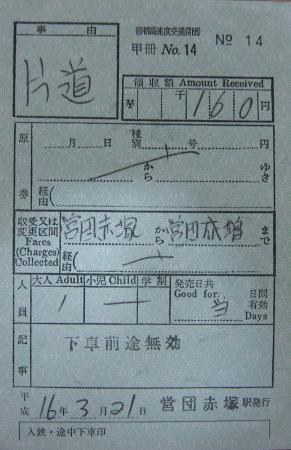 事由
片道
帝都高速度交通営団
甲冊 No.14 № 14
領収額 Amount Received
千 160 円
原券
月 日 種別 号 円
から ゆき
経由(
収受又は変更区間
Fares (Charges) Collected
営団赤塚から営団成増まで
経由(
人員
大人 Adult 小児 Child 学割
1
発売日共
Good for: 当 日間有効 Days
記事
下車前途無効
平成 16年3月21日 営団赤塚駅発行
入鋏・途中下車印